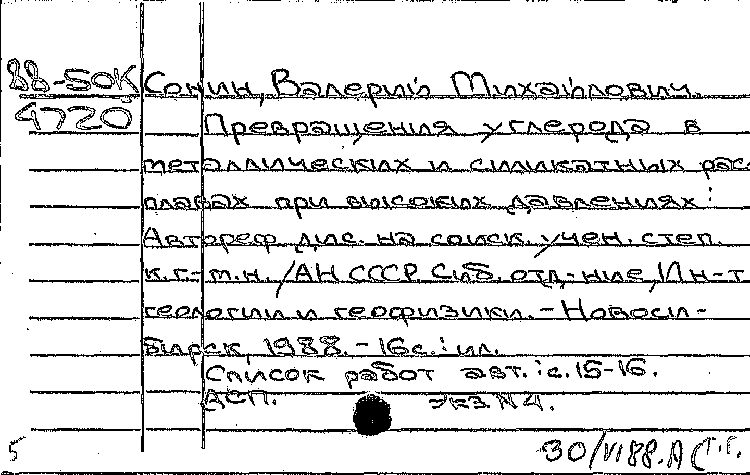 88-50К Сонин, Валерий Михайлович.
4720 Превращения углерода в
металлических и силикатных рас-
плавах при высоких давлениях :
Автореф. дис. на соиск. учен. степ.
к.г.-м.н. /АН СССР. Сиб. отд-ние, Ин-т
геологии и геофизики. - Новоси-
бирск, 1988. - 16 с. : ил.
Список работ авт. : с. 15-16.
ДСП. Экз. N 4.
5 30/VI 88. А (Т.Г.